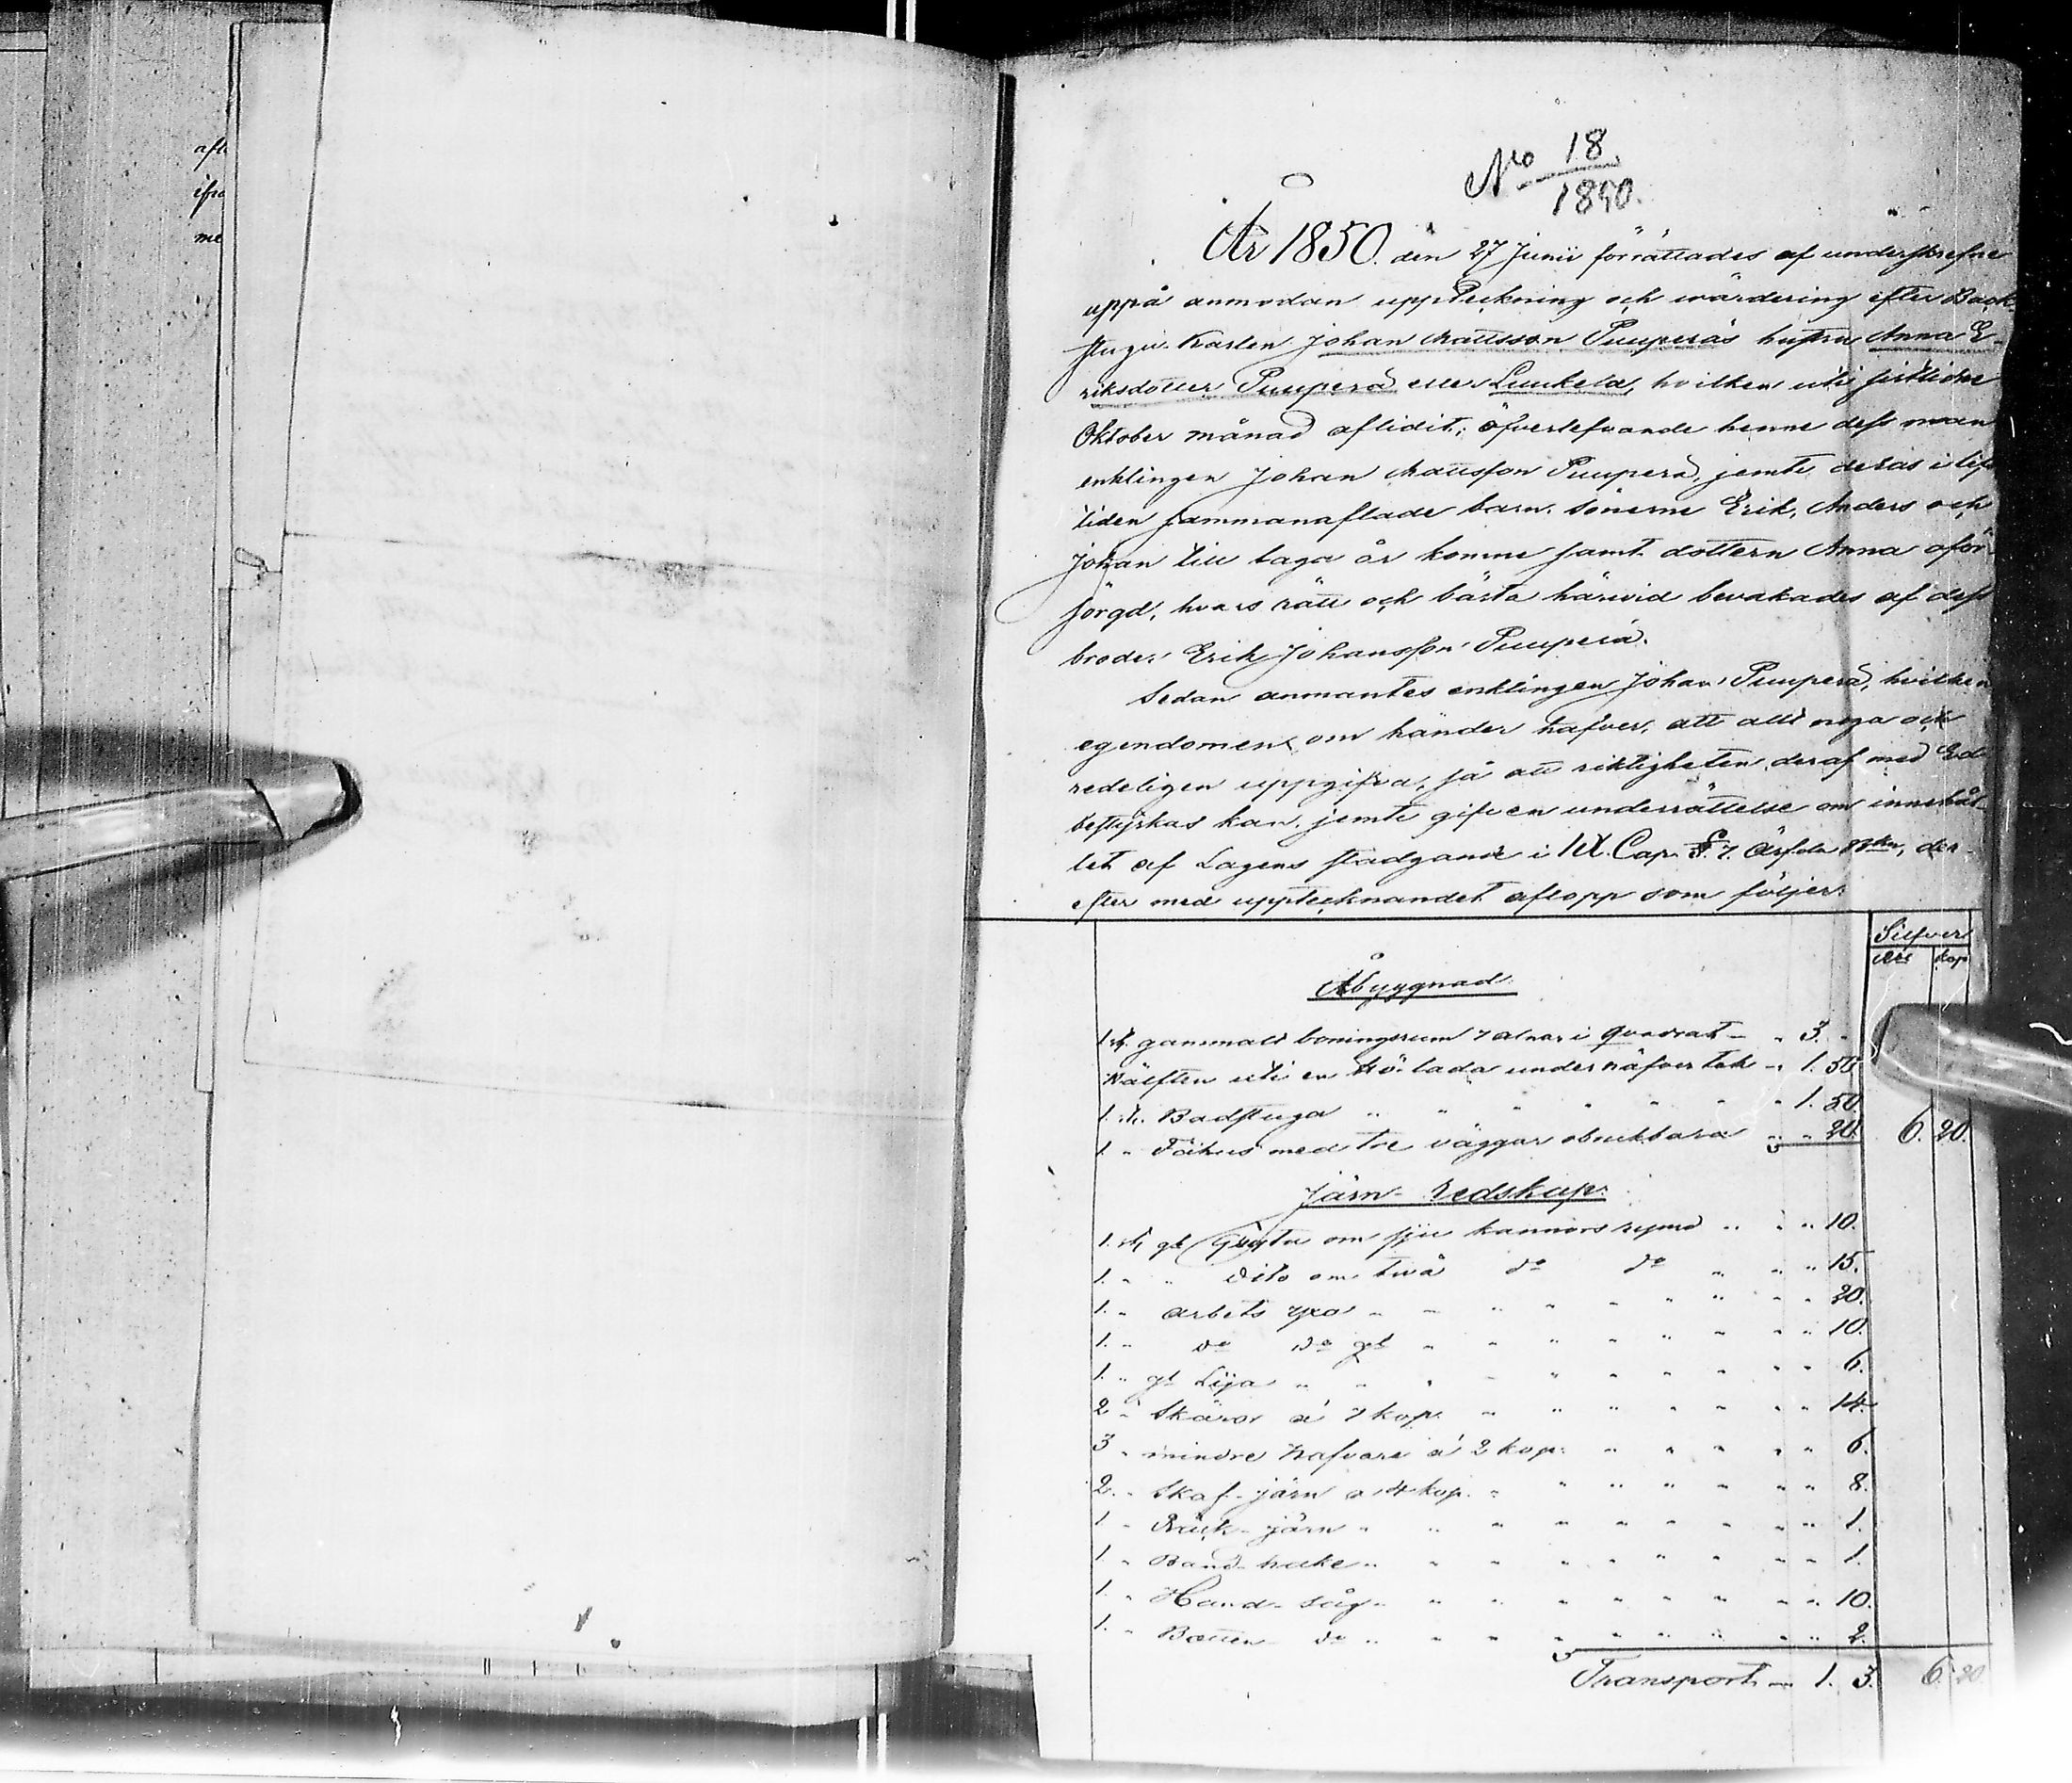 aft
ifra
me
No 18
1850.
År 1850. den 27 Junii förrättades af underskrefne
uppå anmodan uppteckning och wärdering efter Back-
stugu-Karlen Johan Mattsson Puuperäs hustru Anna E-
riksdotter Puuperä eller Luukela, hvilken uti sistlidne
Oktober månad aflidit; öfverlefvande henne dess man
enklingen Johan Mattsson Puuperä, jemte deras i lifs
tiden sammanaflade barn. sönerne Erik, Anders och
Johan till laga år komne samt dottern Anna oför-
sörgd, hvars rätt och bästa härvid bevakades af dess
broder Erik Johansson Puuperä.
Sedan anmantes enklingen Johan Puuperä, hvilken
egendomen om händer hafver, att allt noga och
redeligen uppgifva, så att riktigheten deraf med Ed
bestyrkas kan, jemte gifven underrättelse om innehål-
let af Lagens stadgande i IX. Cap. §. 7. Ärfda Blkn, der-
efter med upptecknandet aflopp som följer:
Silfver
Rbl Kop
Åbyggnad.
1. st. gammalt boningsrum 7 alnar i quadrat - " 3. "
Hälften uti en Hö-lada under näfver tak - " 1. 50
1. st. Badstuga " " " " " " 1. 50.
1. " Fähus med tre väggar obrukbara " " 20. 6. 20.
Järn-redskap.
1. st gl Gryta om sju kannors rymd " " " 10.
1. " " dito om två do do " " " 15.
1. " arbets yxa " " " " " " " " 20.
1. " do do gl " " " " " " " 10.
1. " gl Lija " " " " " " " " " 6.
2 " Skäror à 7 kop. " " " " " " " 14.
3 " mindre Nafvare à 2 kop. " " " " " 6.
2. " Skaf-järn a 4 kop. " " " " " " " 8.
1 " järn " " " " " " " " 1.
1. " Band-hake " " " " " " " " 1.
1. " Hand-såg " " " " " " " " 10.
1. " Botten do " " " " " " " " 2.
Transport - 1. 3. 6. 20